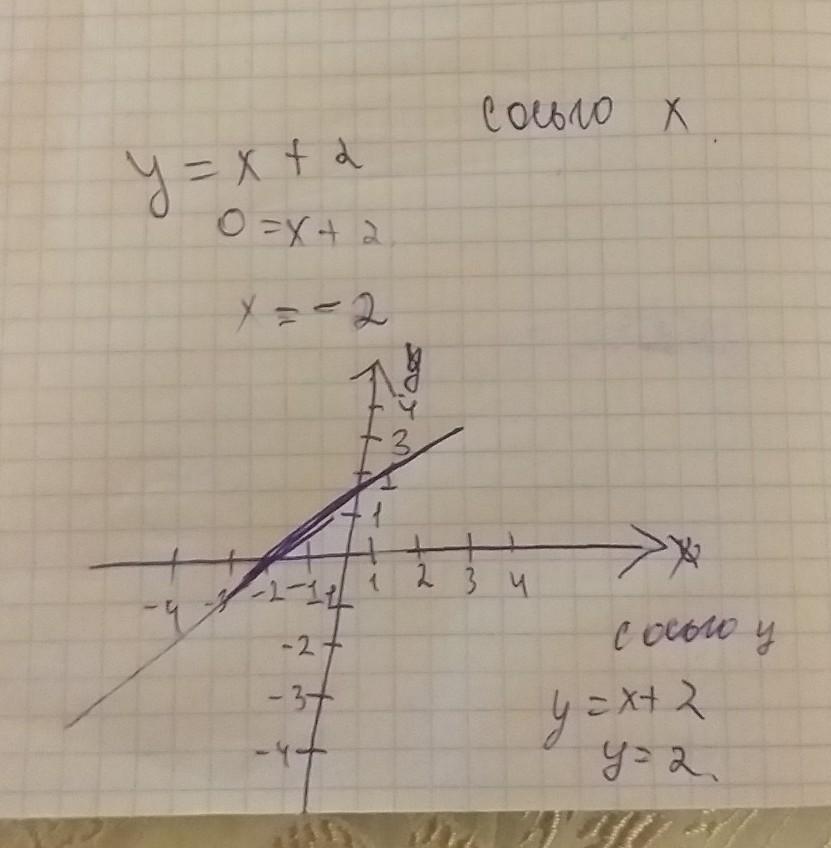 с осью x
y = x + 2
0 = x + 2
x = - 2
y
4
3
1
x
-4 -3 -2 -1 1 2 3 4
-1
-2
-3
-4
с осью y
y = x + 2
y = 2